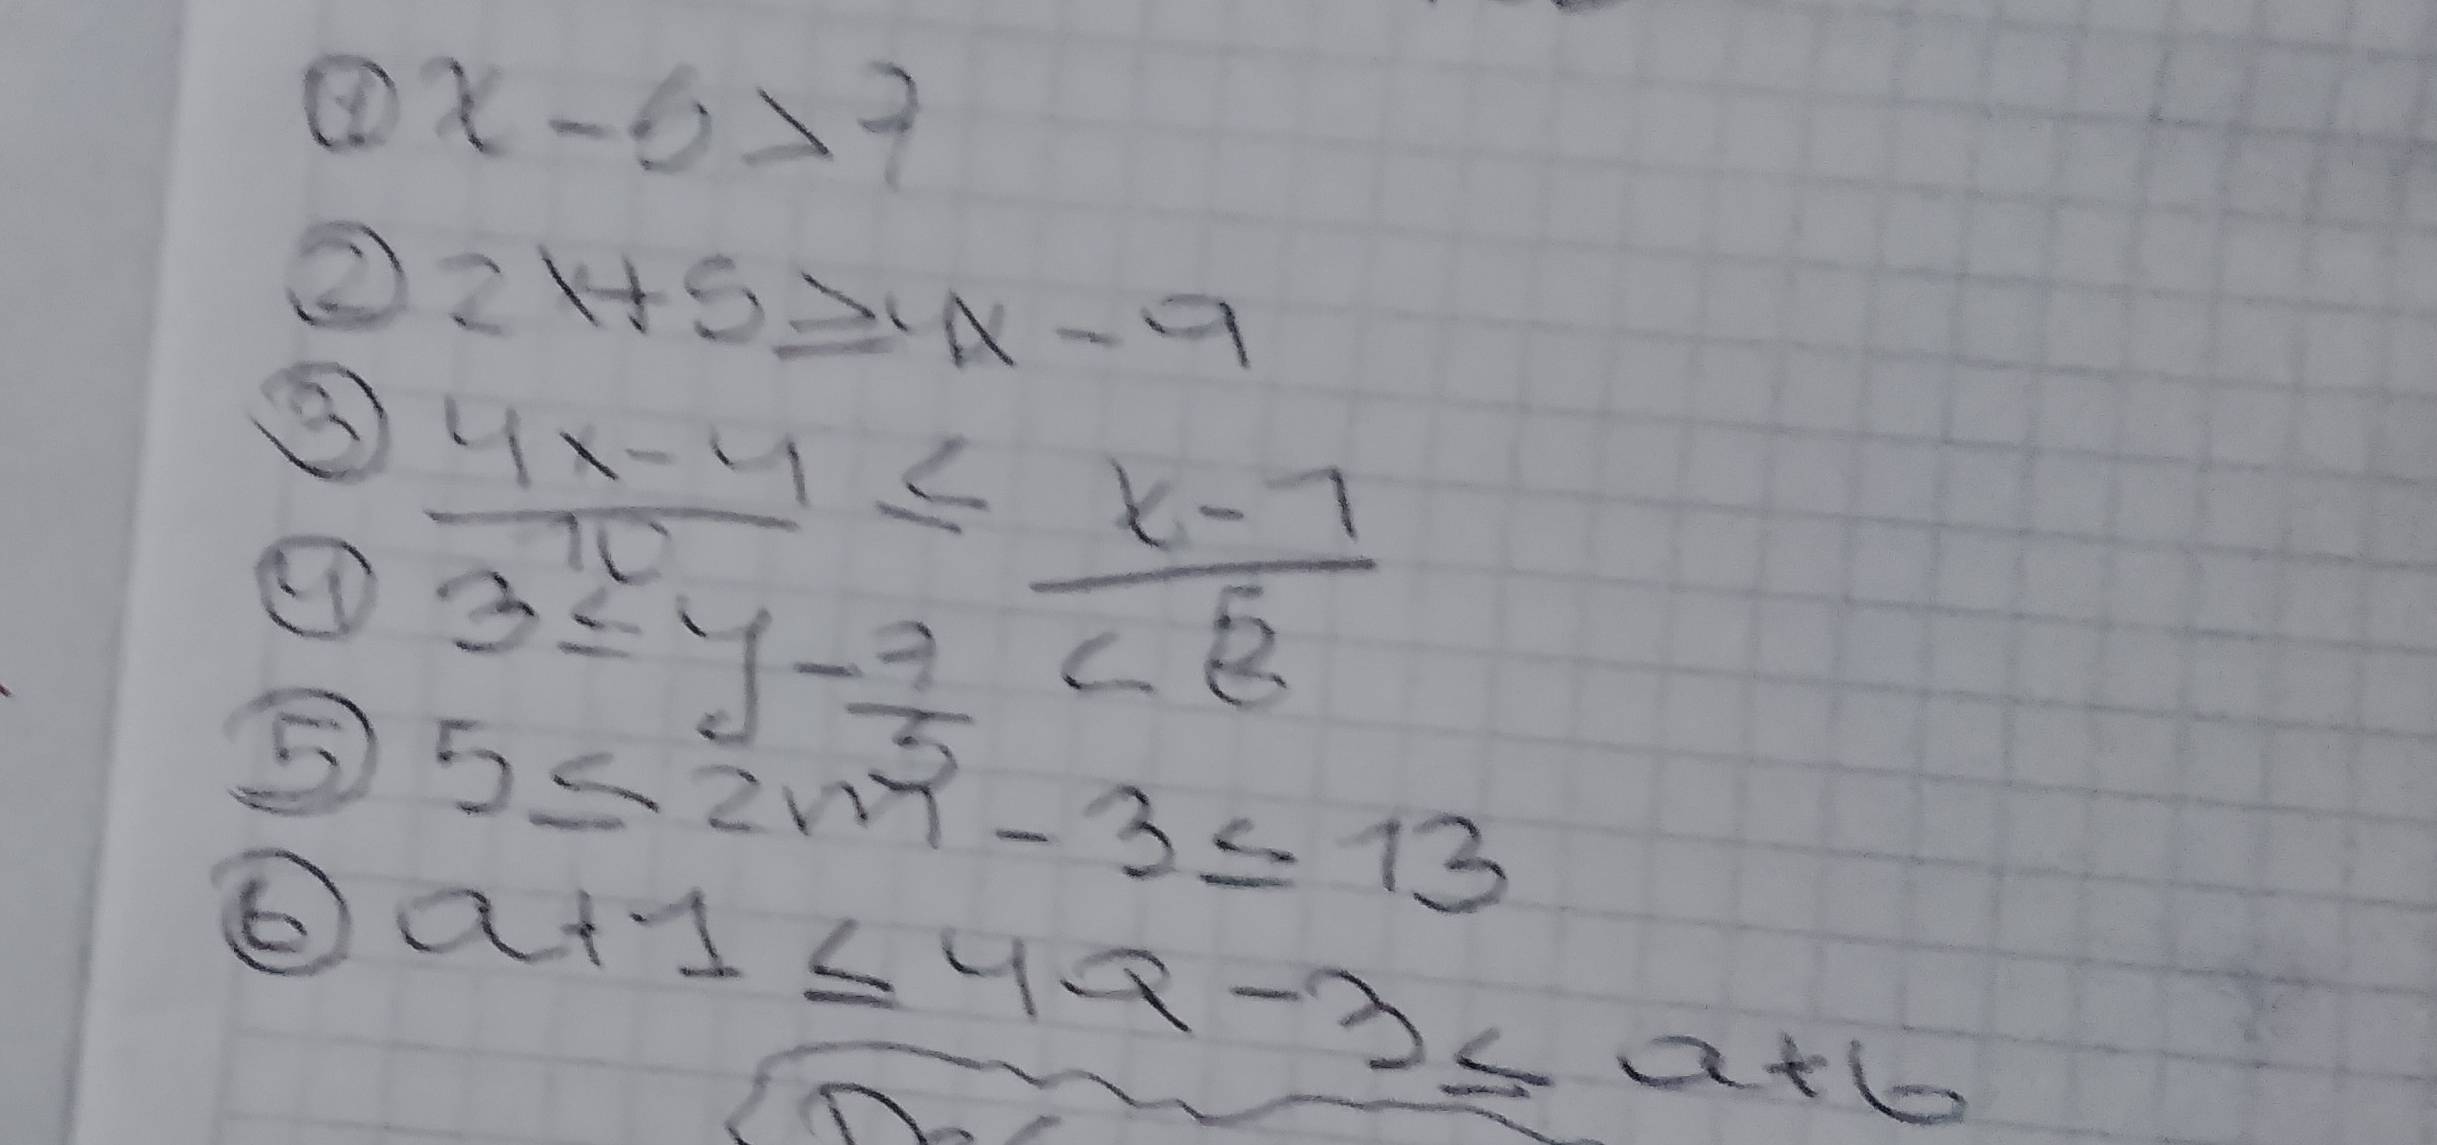 ① x - 6 > 7
② 2x + 5 ≥ x - 9
③ (4x - 4)/10 ≤ (x - 1)/5
④ 3 ≤ y - 7/3 < 8
⑤ 5 ≤ 2m - 3 ≤ 13
⑥ a + 1 ≤ 4a - 3 ≤ a + 6